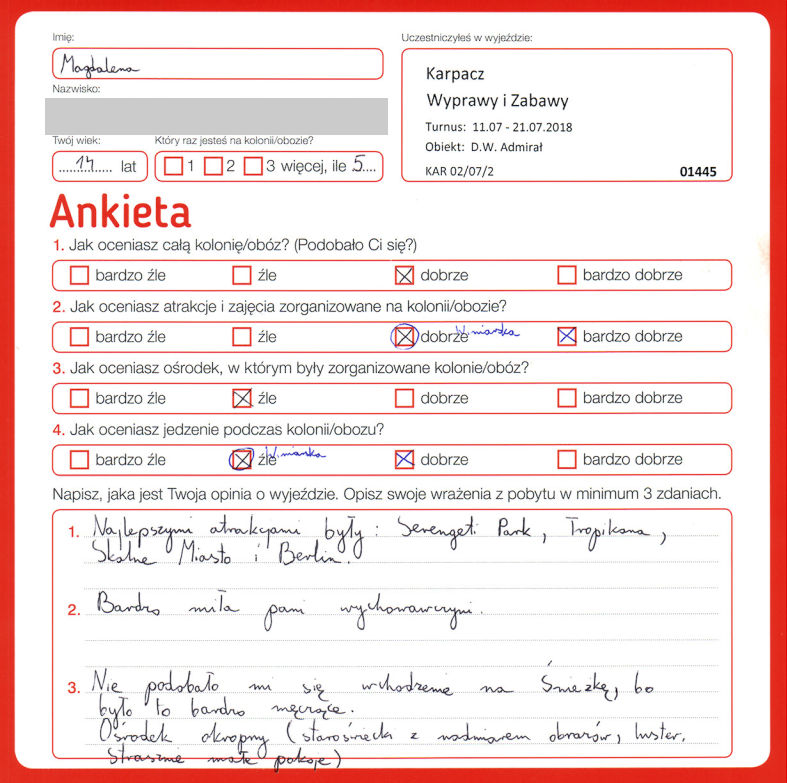 Imię:
Magdalena
Nazwisko:
Twój wiek:
14 lat
Który raz jesteś na kolonii/obozie?
1 2 3 więcej, ile 5
Uczestniczyłeś w wyjeździe:
Karpacz
Wyprawy i Zabawy
Turnus: 11.07 - 21.07.2018
Obiekt: D.W. Admirał
KAR 02/07/2 01445
Ankieta
1. Jak oceniasz całą kolonię/obóz? (Podobało Ci się?)
bardzo źle źle dobrze bardzo dobrze
2. Jak oceniasz atrakcje i zajęcia zorganizowane na kolonii/obozie?
bardzo źle źle dobrze Winiarska bardzo dobrze
3. Jak oceniasz ośrodek, w którym były zorganizowane kolonie/obóz?
bardzo źle źle dobrze bardzo dobrze
4. Jak oceniasz jedzenie podczas kolonii/obozu?
bardzo źle źle Winiarska dobrze bardzo dobrze
Napisz, jaka jest Twoja opinia o wyjeździe. Opisz swoje wrażenia z pobytu w minimum 3 zdaniach.
1. Najlepszymi atrakcjami były: Serengeti Park, Tropikana,
Skalne Miasto i Berlin.
2. Bardzo miła pani wychowawczyni.
3. Nie podobało mi się wchodzenie na Śnieżkę, bo
było to bardzo męczące.
Ośrodek okropny (staroświecki z nadmiarem obrazów, luster,
strasznie małe pokoje)